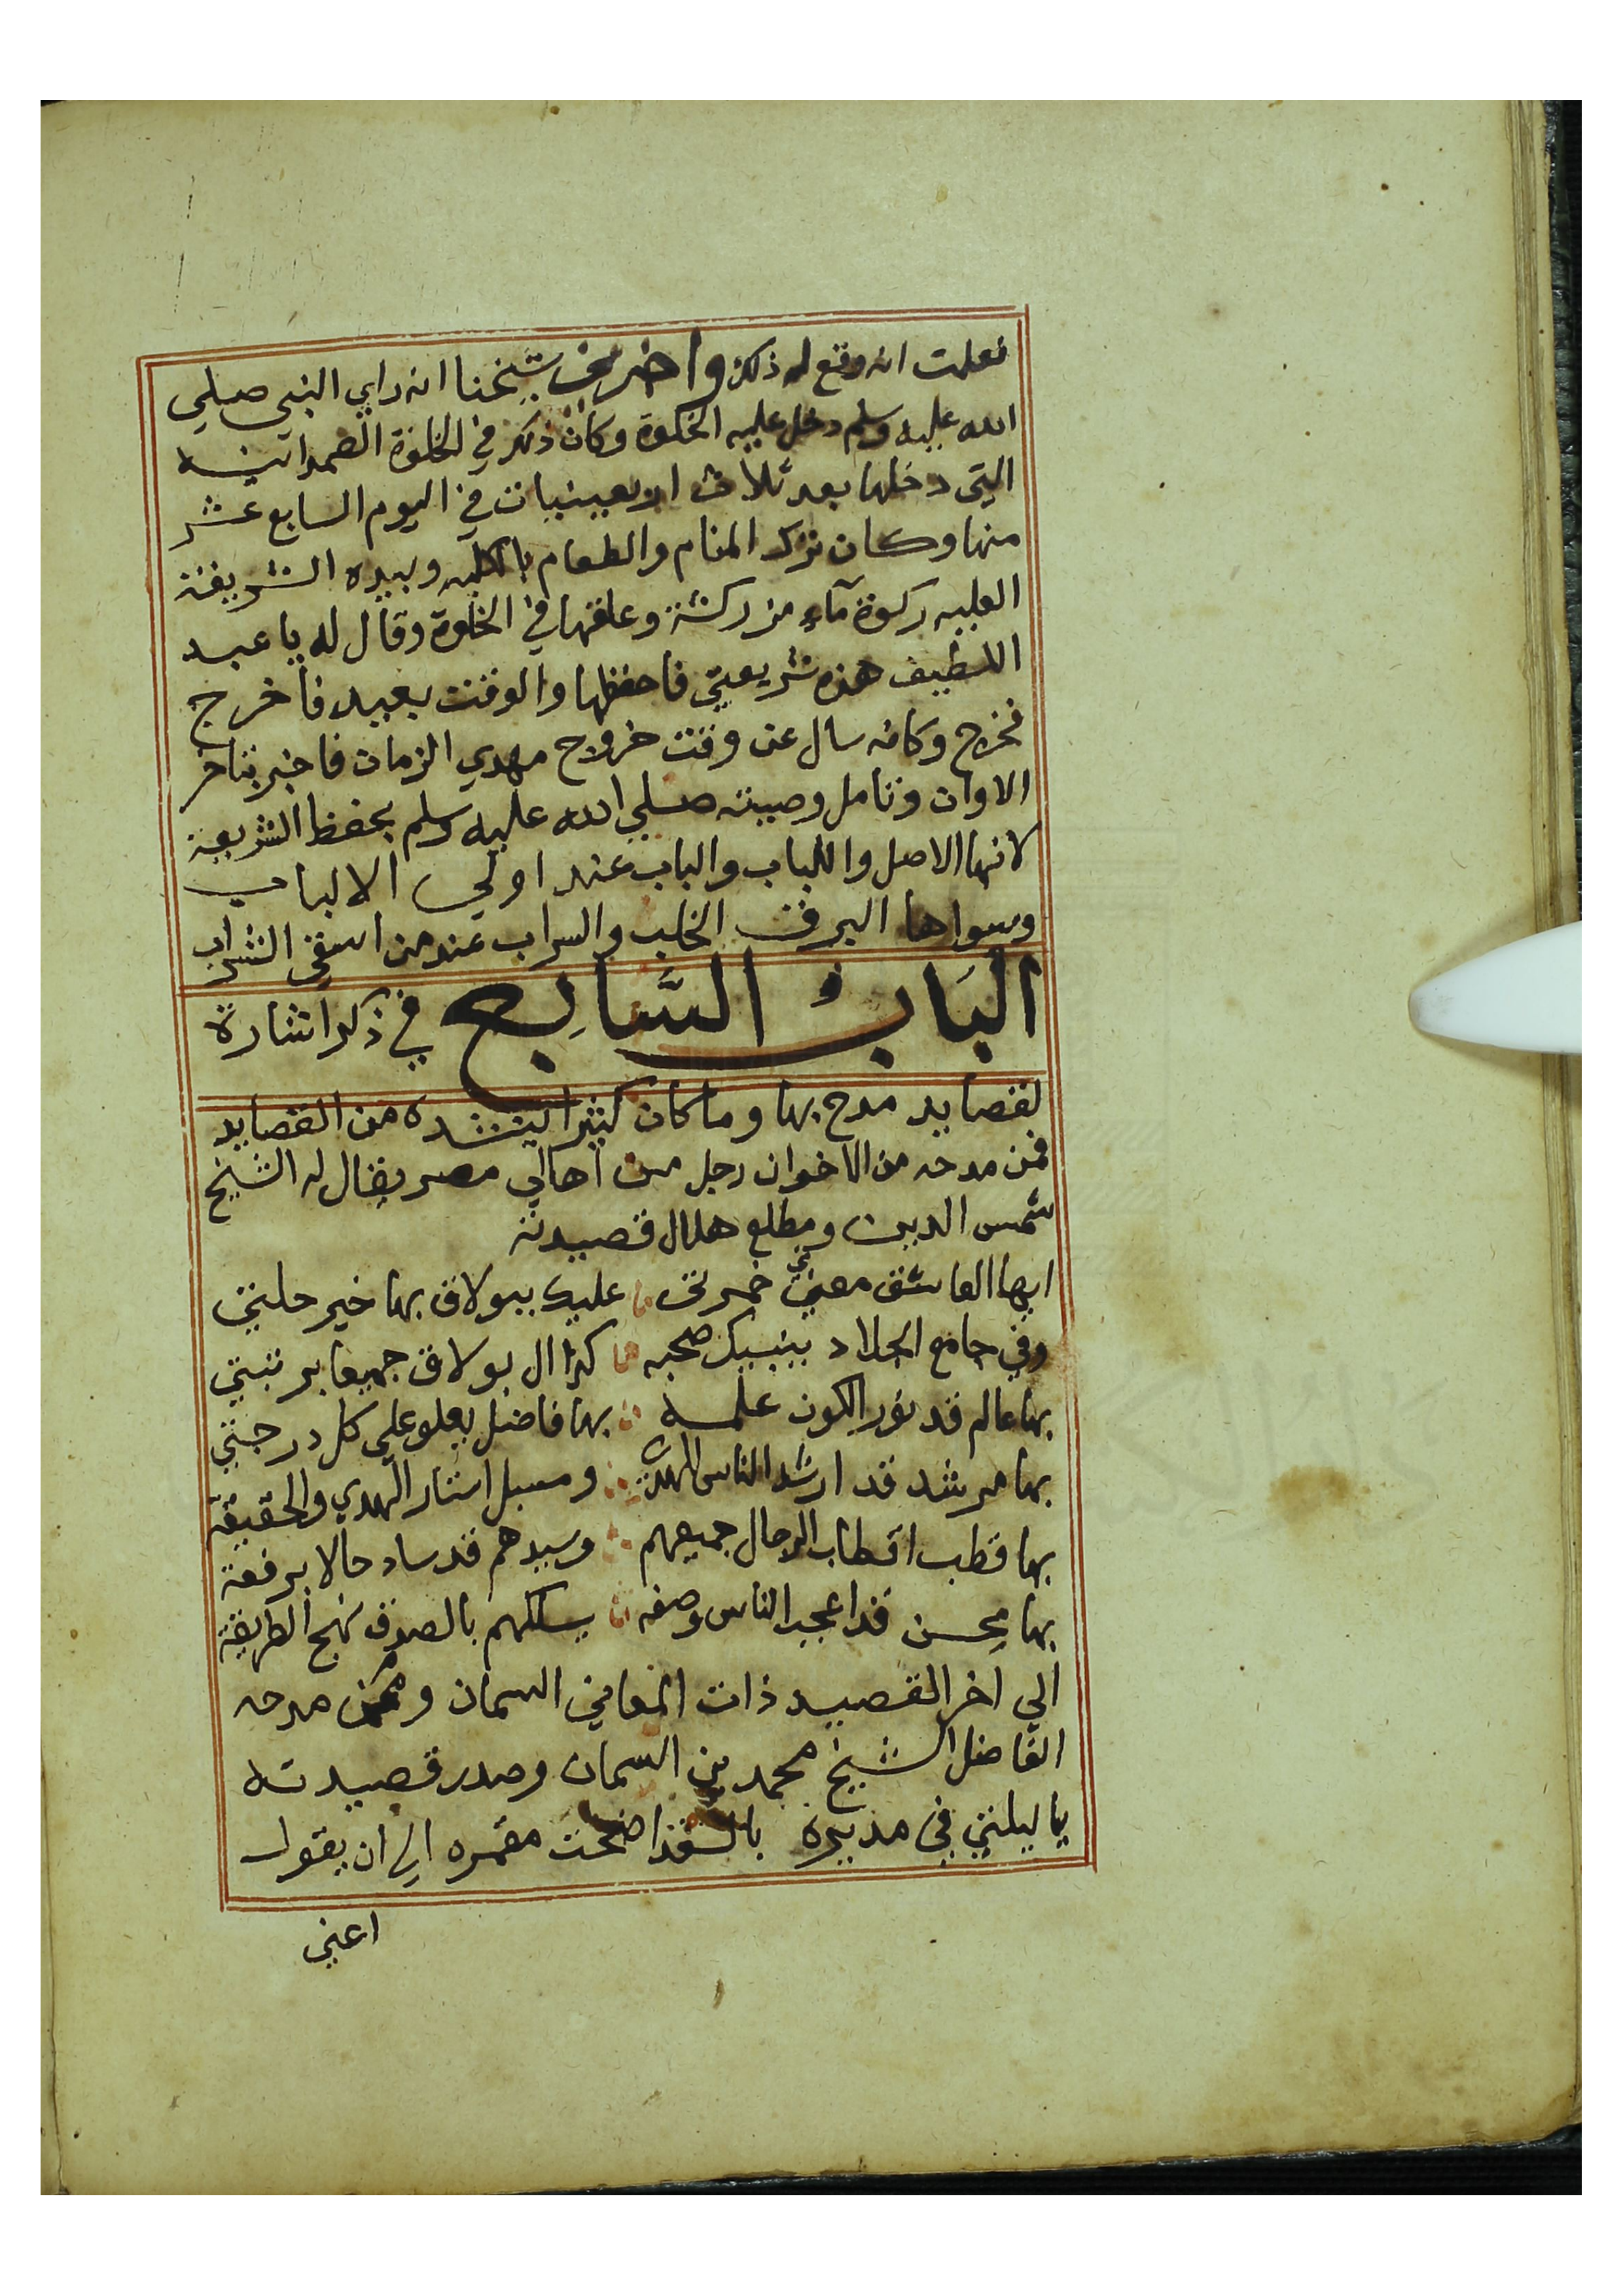 فعلمت انه وقع له ذلك واخبرني شيخنا انه راي النبي صلي
الله عليه وسلم دخل عليه الخلوة وكان ذلك في الخلوة الصمدانيه
التي دخلها بعد ثلاث اربعينيات في اليوم السابع عشر
منها وكان ترك المنام والطعام بالكليه وبيده الشريفة
العليه ركوة مآء مزركشة وعلقها في الخلوة وقال له يا عبد
اللطيف هذه شريعتي فاحفظها والوقت بعيد فاخرج
فخرج وكانه سال عن وقت خروج مهدي الزمان فاخبر بتاخر
الاوان وتامل وصيته صلي الله عليه وسلم بحفظ الشريعة
لانها الاصل واللباب والباب عند اولي الالباب
وسواها البرق الخلب والسراب عند من اسقي الشراب
الباب السابع في ذكر اشارة
لقصايد مدح بها وما كان كثيرا ينشده من القصايد
فمن مدحه من الاخوان رجل من اهالي مصر يقال له الشيخ
شمس الدين ومطلع هلال قصيدته
ايها العاشق معني خمرتي عليك ببولاق بها خير حلتي
وفي جامع الجلاد ينبيك صحبه كذا ال بولاق جميعا برتبتي
بها عالم قد نور الكون علمه بها فاضل يعلو علي كل درجتي
بها مرشد قد ارشد الناس للهدى ومسبل استار الهدي والحقيقة
بها قطب اقطاب الرجال جميعهم وسيدهم قد ساد حالا برفعة
بها محسن قد اعجب الناس وصفه يسلكهم بالصدق نهج الطريقة
الي اخر القصيد ذات المعاني السمان وممن مدحه
الفاضل الشيخ محمد بن السمان وصدر قصيدته
يا ليلتي في مديره بالسفح اضحت مقمره الي ان يقول
اعني